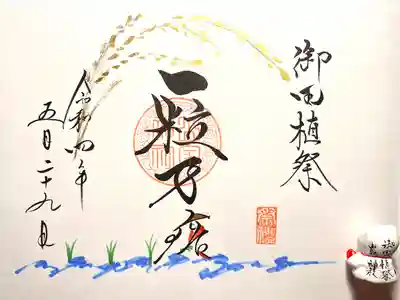 御田植祭
一粒万倍
令和四年
五月二十九日
御田植祭